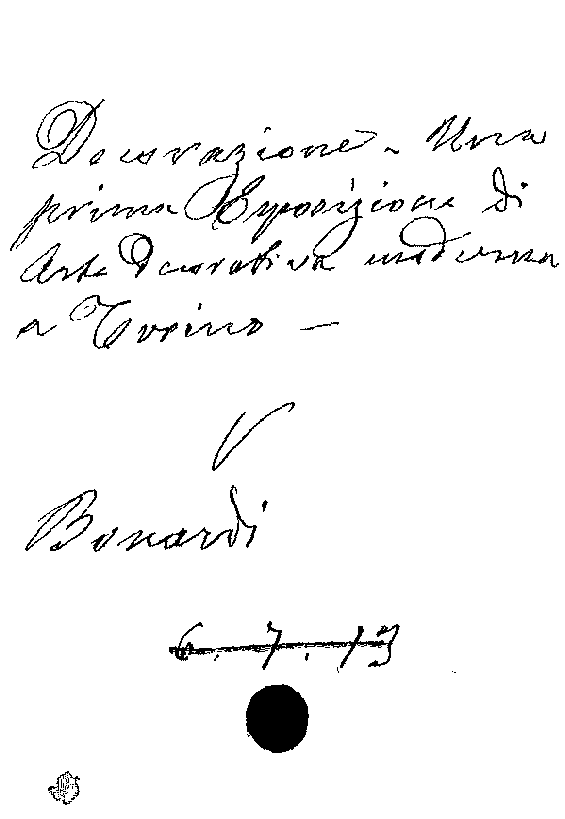 Decorazione - Una
prima Esposizione di
Arte Decorativa moderna
a Torino —
V
Bonardi
6. 7. 13